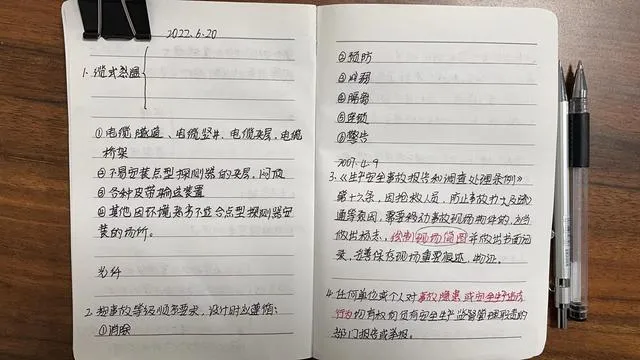 2022.6.20
1. 缆式感温
①电缆隧道、电缆竖井、电缆夹层、电缆
桥架
②不易安装点型探测器的夹层、闷顶
③各种皮带输送装置
④其他因环境恶劣不适合点型探测器安
装的场所。
2. 按事故等级顺序要求，设计时应遵循：
①消除
②预防
③减弱
④隔离
⑤连锁
⑥警告
2007.4.9
3.《生产安全事故报告和调查处理条例》
第十六条，因抢救人员，防止事故扩大及疏
通等原因，需要移动事故现场物件的，应当
做出标志，绘制现场简图并做出书面记
录，妥善保存现场重要痕迹、物证。
4. 任何单位或个人对事故隐患或安全生产违法
行为均有权向负有安全生产监督管理职责的
部门报告或举报。